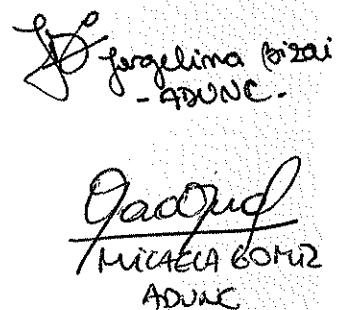 Jorgelina Bizai
- ADUNC -
MICAELA GOMIZ
ADUNC